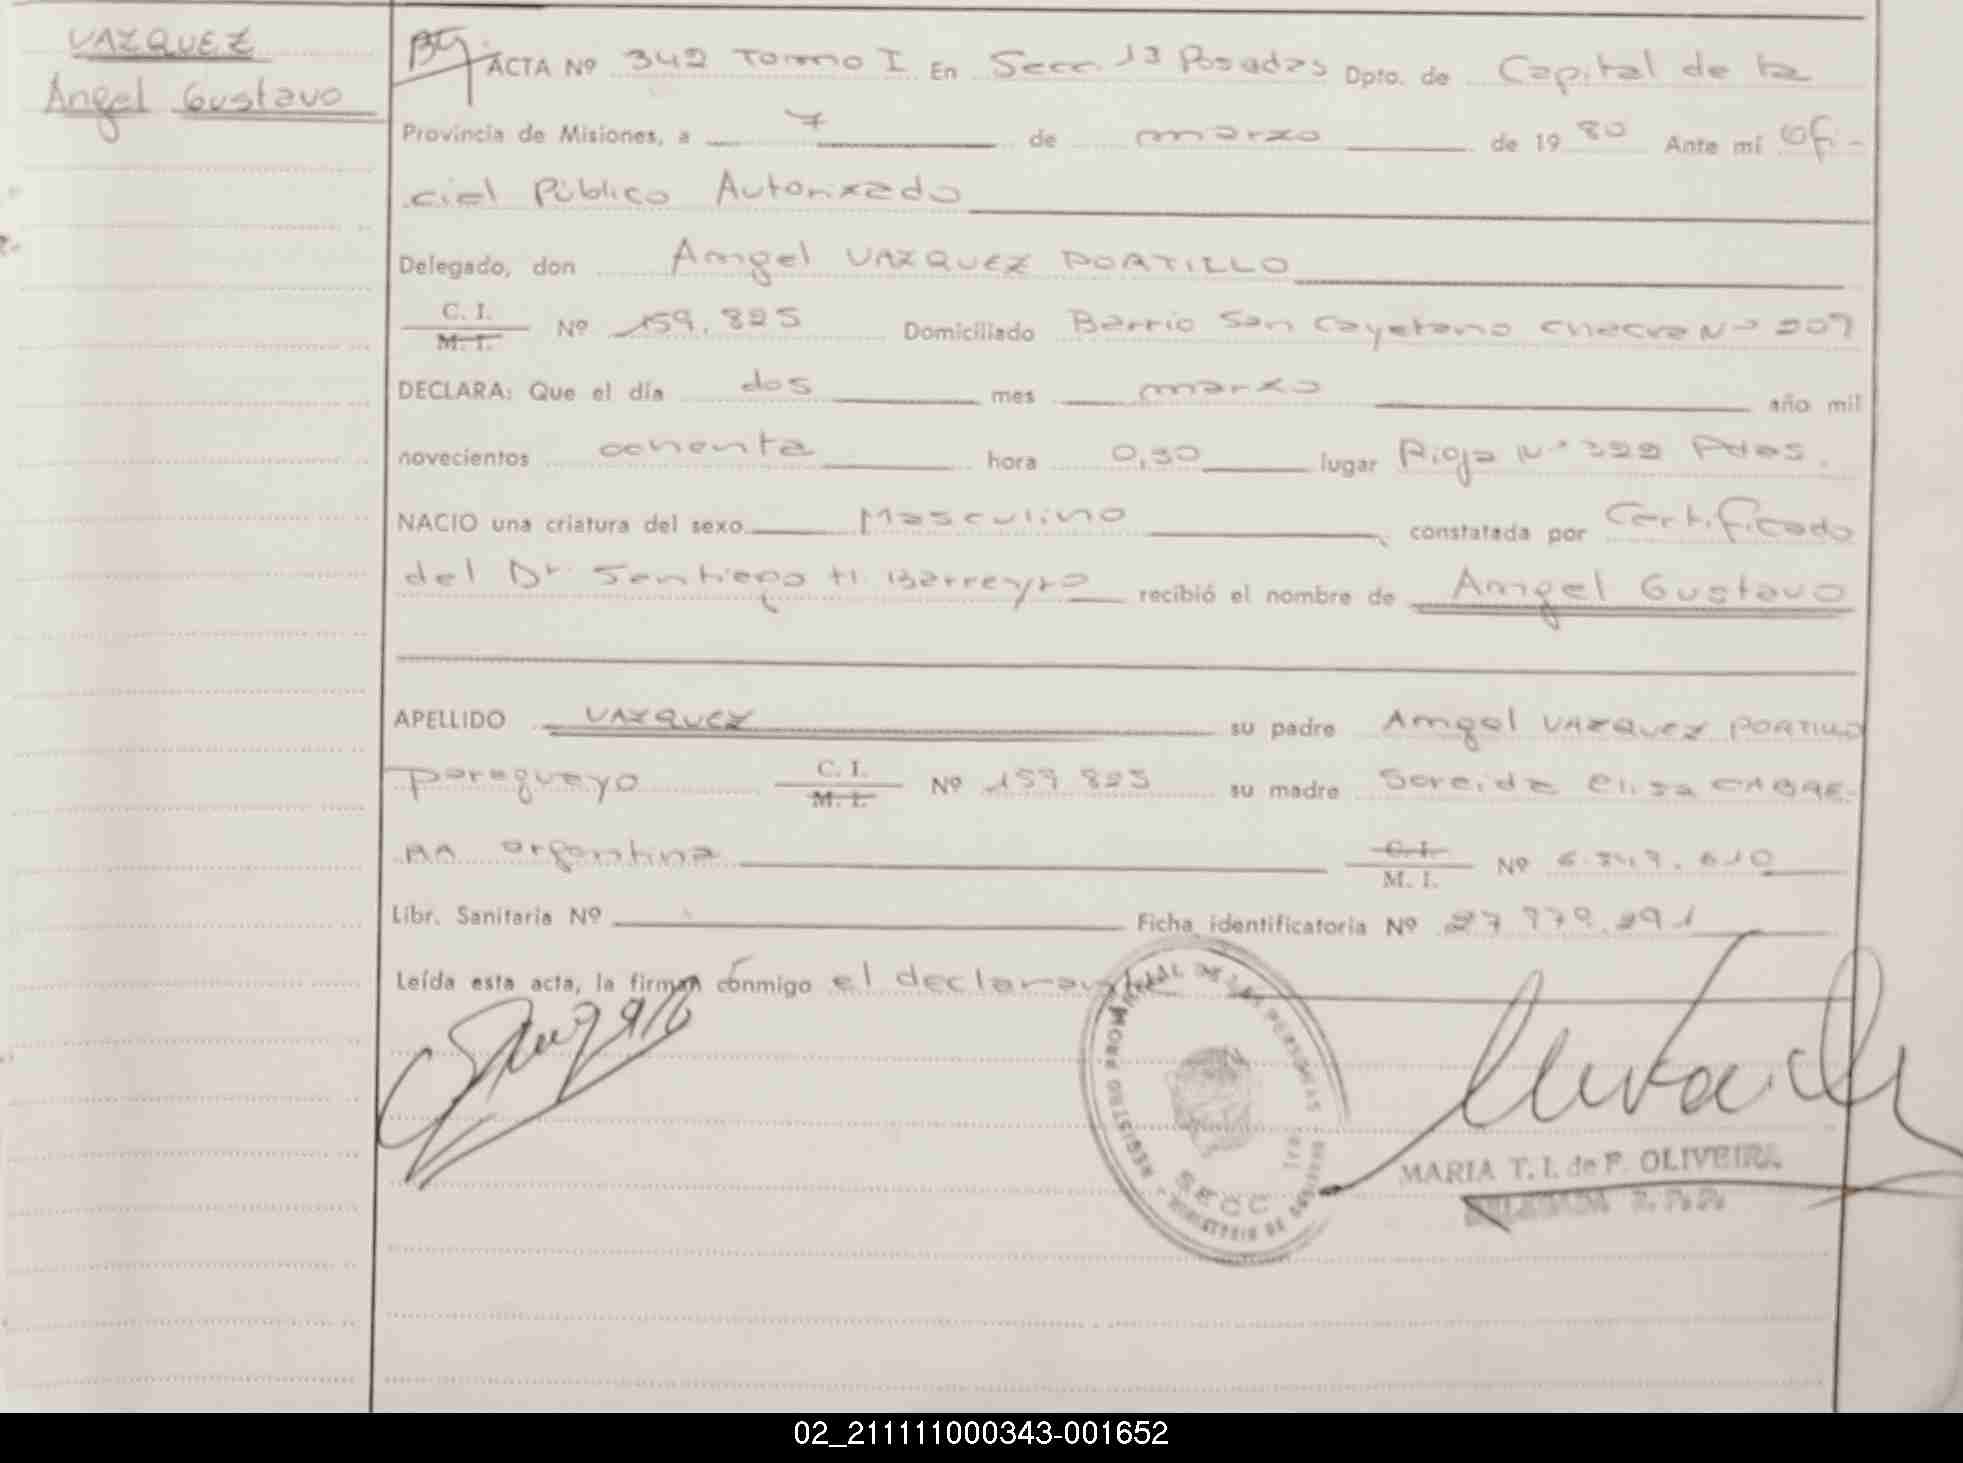 VAZQUEZ
Angel Gustavo
ACTA Nº 342 Tomo I En Secc. 1ª Posadas Dpto. de Capital de la
Provincia de Misiones, a 7 de marzo de 1980 Ante mí Ofi-
cial Público Autorizado
Delegado, don Angel VAZQUEZ PORTILLO
C. I.
M. I. Nº 159.825 Domiciliado Barrio San Cayetano Chacra Nº 207
DECLARA: Que el día dos mes marzo año mil
novecientos ochenta hora 0,30 lugar Rioja Nº 322 Pdas.
NACIO una criatura del sexo Masculino constatada por Certificado
del Dr. Santiago H. Barreyro recibió el nombre de Angel Gustavo
APELLIDO VAZQUEZ su padre Angel VAZQUEZ PORTILLO
paraguayo C. I. M. I. Nº 159.825 su madre Elisa CABRE-
RA argentina C. I. M. I. Nº
Libr. Sanitaria Nº Ficha identificatoria Nº
Leída esta acta, la firman conmigo el declarante
REGISTRO PROVINCIAL DE LAS PERSONAS
SECC 1ra.
MINISTERIO DE GOBIERNO
MARIA T. I. de F. OLIVEIRA
DELEGADA R. P. P.
02_211111000343-001652